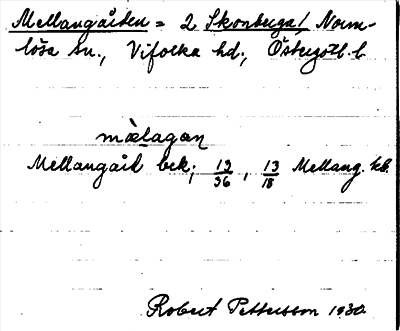 Mellangården = 2 Skonberga/ Norm-
lösa sn., Vifolka hd., Östergötl. l.
mælagan
Mellangård bek., 13/36, 13/18 Mellang. kb.
Robert Pettersson 1930.